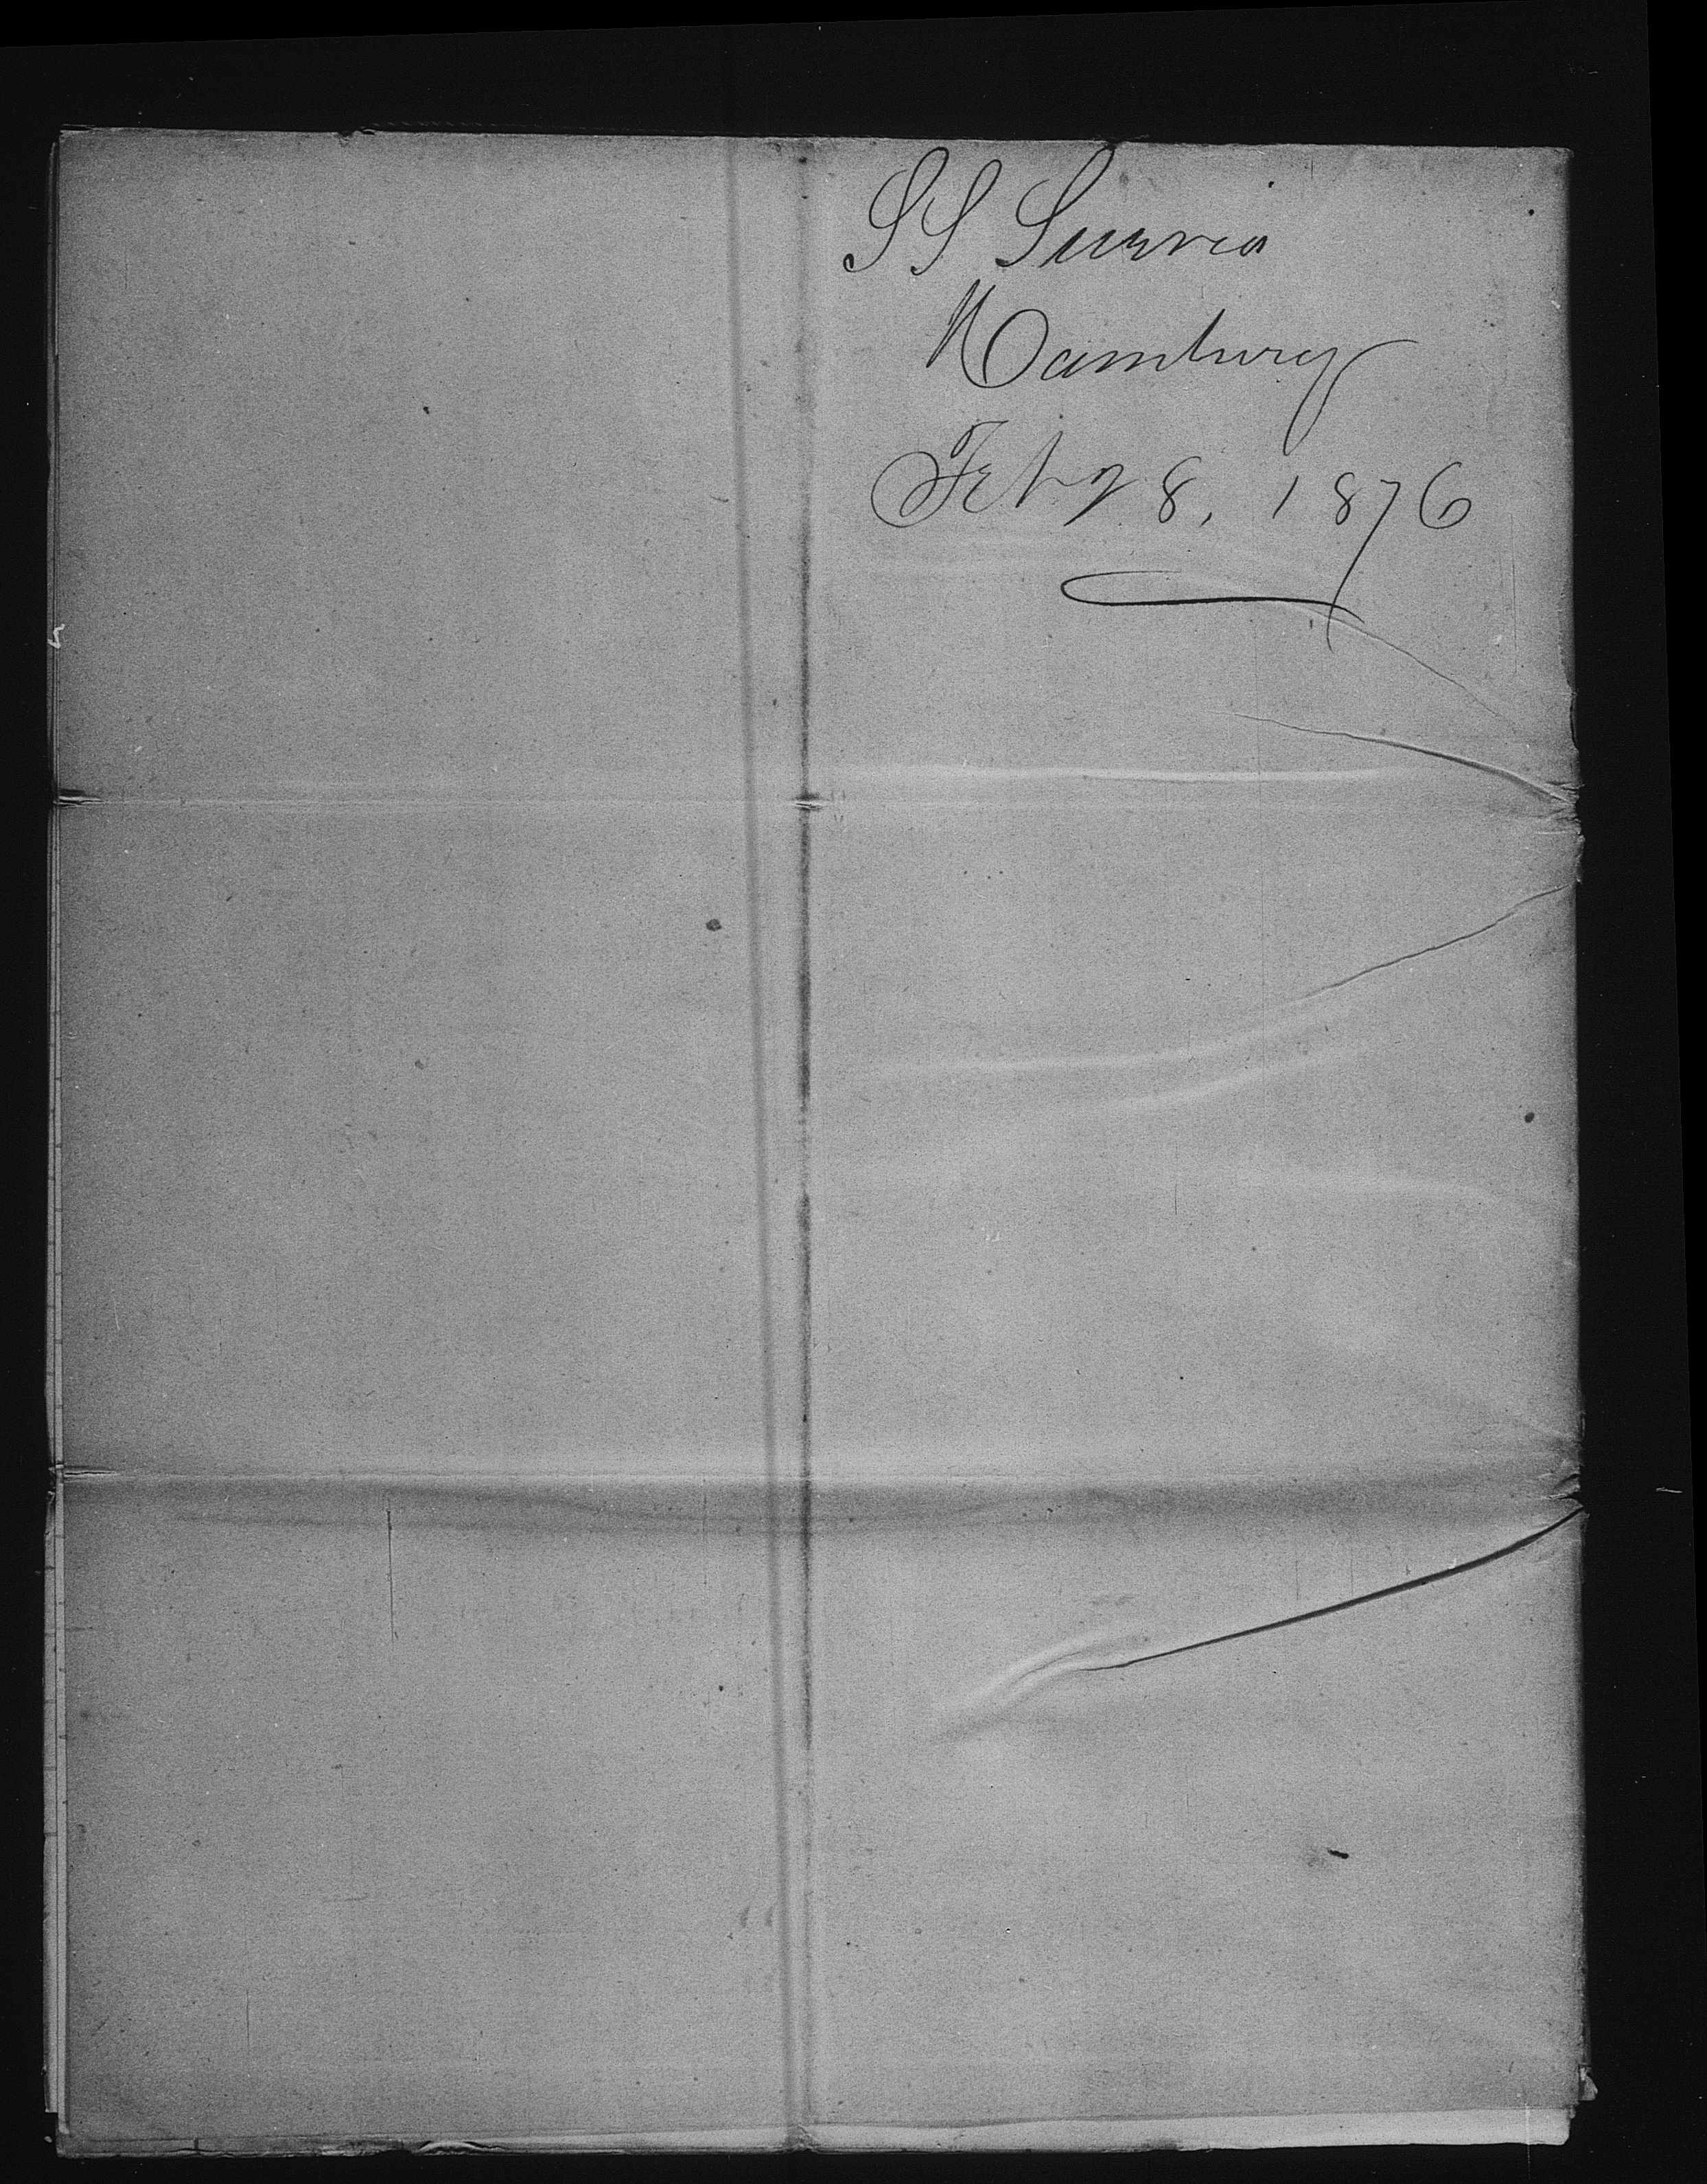 SS Suevia
Hamburg
Feby 8, 1876